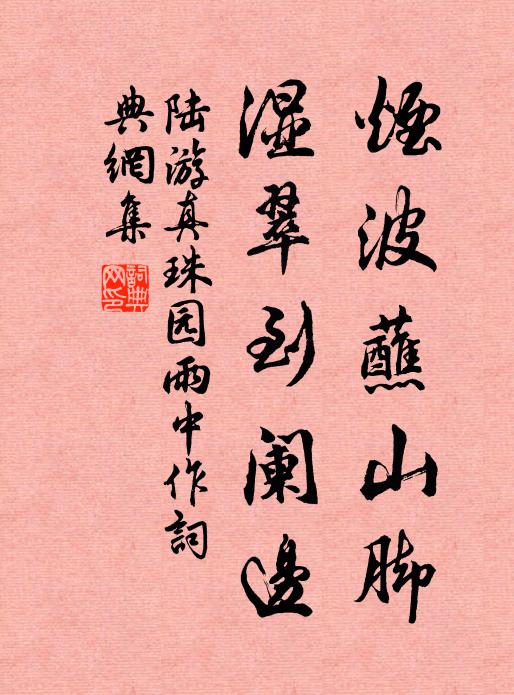 煙波蘸山脚
湿翠到阑邊
陆游真珠园雨中作詞
典網集
詞典
网印